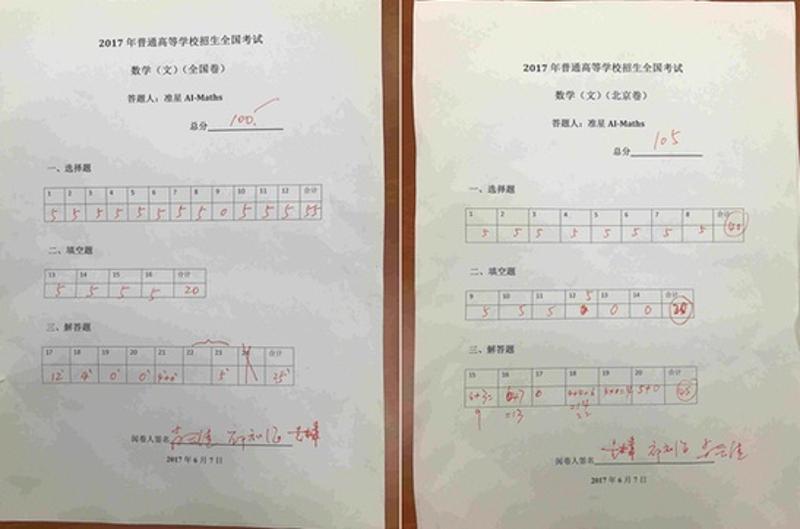 2017年普通高等学校招生全国考试
数学（文）（全国卷）
答题人：准星 AI-Maths
总分 100.
一、选择题
1 2 3 4 5 6 7 8 9 10 11 12 合计
5 5 5 5 5 5 5 5 0 5 5 5 55
二、填空题
13 14 15 16 合计
5 5 5 5 20
三、解答题
17 18 19 20 21 22 23 合计
12 4 0 0 5 25
阅卷人签名
2017年6月7日
2017年普通高等学校招生全国考试
数学（文）（北京卷）
答题人：准星 AI-Maths
总分 105
一、选择题
1 2 3 4 5 6 7 8 合计
5 5 5 5 5 5 5 5 40
二、填空题
9 10 11 12 13 14 合计
5 5 5 5 0 0
三、解答题
15 16 17 18 19 20 合计
6+3= 0 5+0
9 =13
阅卷人签名
2017年6月7日